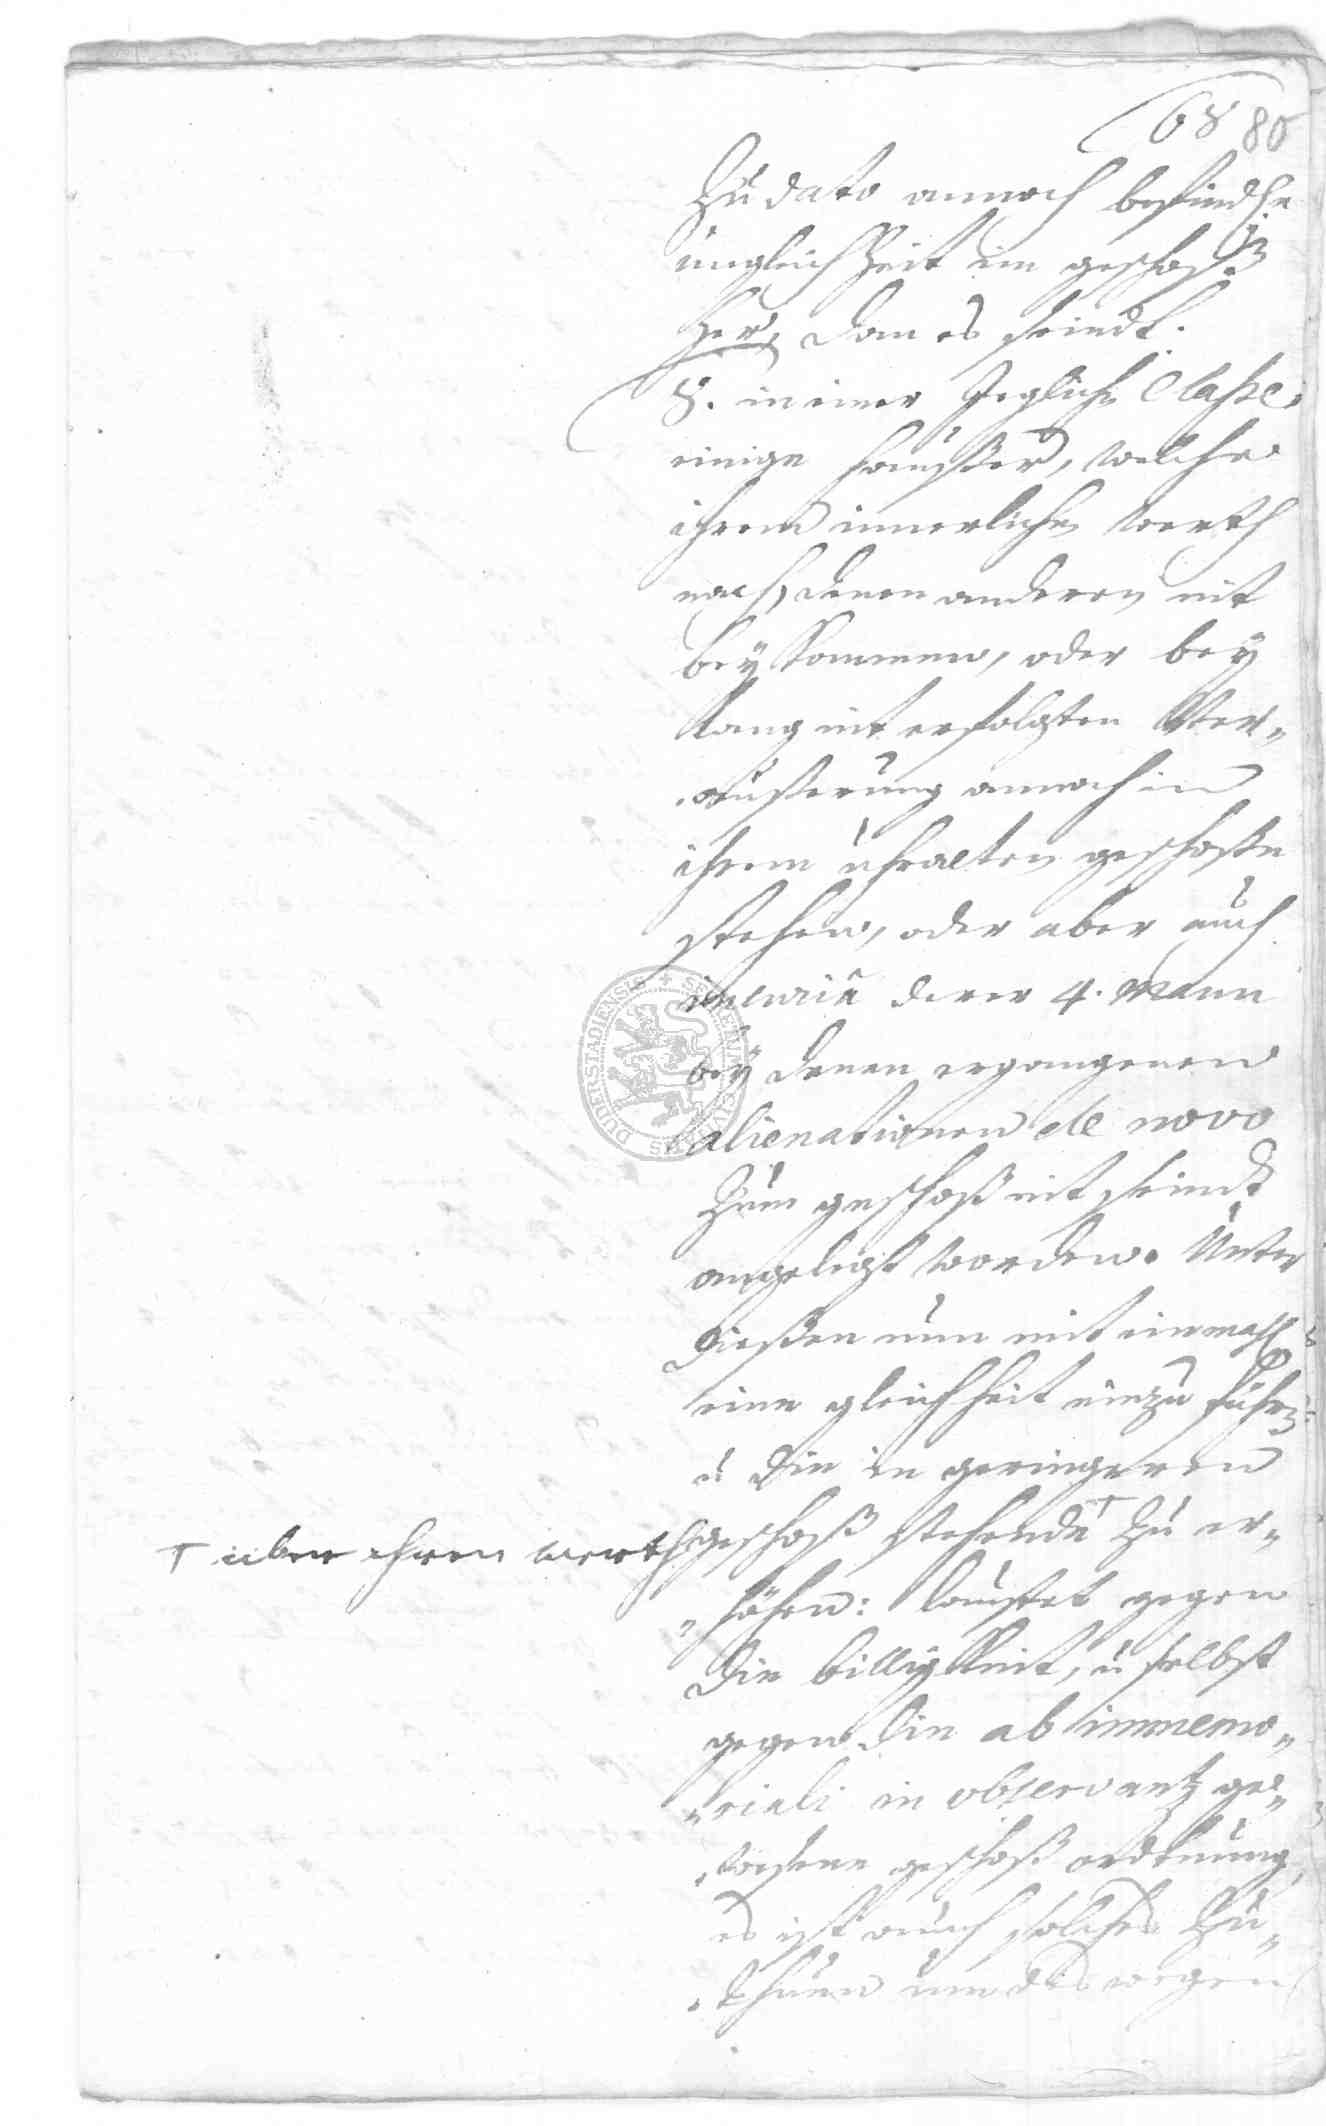 68 80
Zu dato annoch befindtle
ungleichheit im geschoß
her, dan es seindt.
8. in einer Jeglichen Classe
einige haüßer, welche
ihrem innerlichen werth
nach denen anderen nit
bey kommen, oder bey
lang nit erfolgten Ver„
„aüßerung annoch in
ihrem uhralten geschosse
stehen, oder aber auch
incuriâ derer 4. Mann
bey denen ergangenen
alienationen de novo
Zum geschoß nit seindt
angelegt worden. Unter
dießen nun mit einmahl
eine gleichheit einzuführen
u die in geringeren
geschoß stehende ⊤ Zu er„
⊤ uber ihren werth
„höhen: lauffet gegen
die billigkeit, u selbst
gegen die ab immemo„
„riali in observantz ge„
„wesene geschoß ordtnung,
es ist auch solches Zu„
„thuen umdeswegen
DUDERSTADIENSIS + SECRETUM CIVITATIS